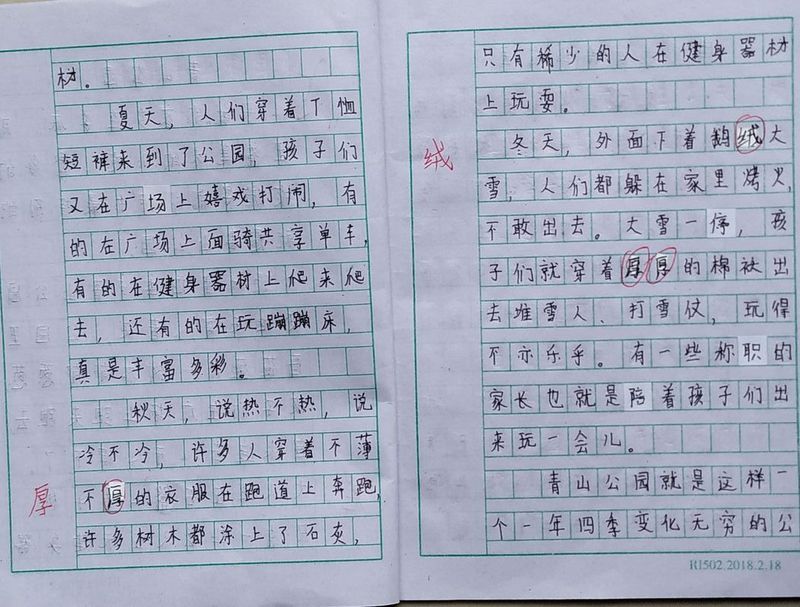 材。
夏天，人们穿着T恤
短裤来到了公园，孩子们
又在广场上嬉戏打闹，有
的在广场上面骑共享单车，
有的在健身器材上爬来爬
去，还有的在玩蹦蹦床，
真是丰富多彩。
秋天，说热不热，说
冷不冷，许多人穿着不薄
不厚的衣服在跑道上奔跑，
厚
许多树木都涂上了石灰，
只有稀少的人在健身器材
上玩耍。
冬天，外面下着鹅绒大
绒
雪，人们都躲在家里烤火，
不敢出去。大雪一停，孩
子们就穿着厚厚的棉袄出
去堆雪人、打雪仗，玩得
不亦乐乎。有一些称职的
家长也就是陪着孩子们出
来玩一会儿。
青山公园就是这样一
个一年四季变化无穷的公
R1502.2018.2.18